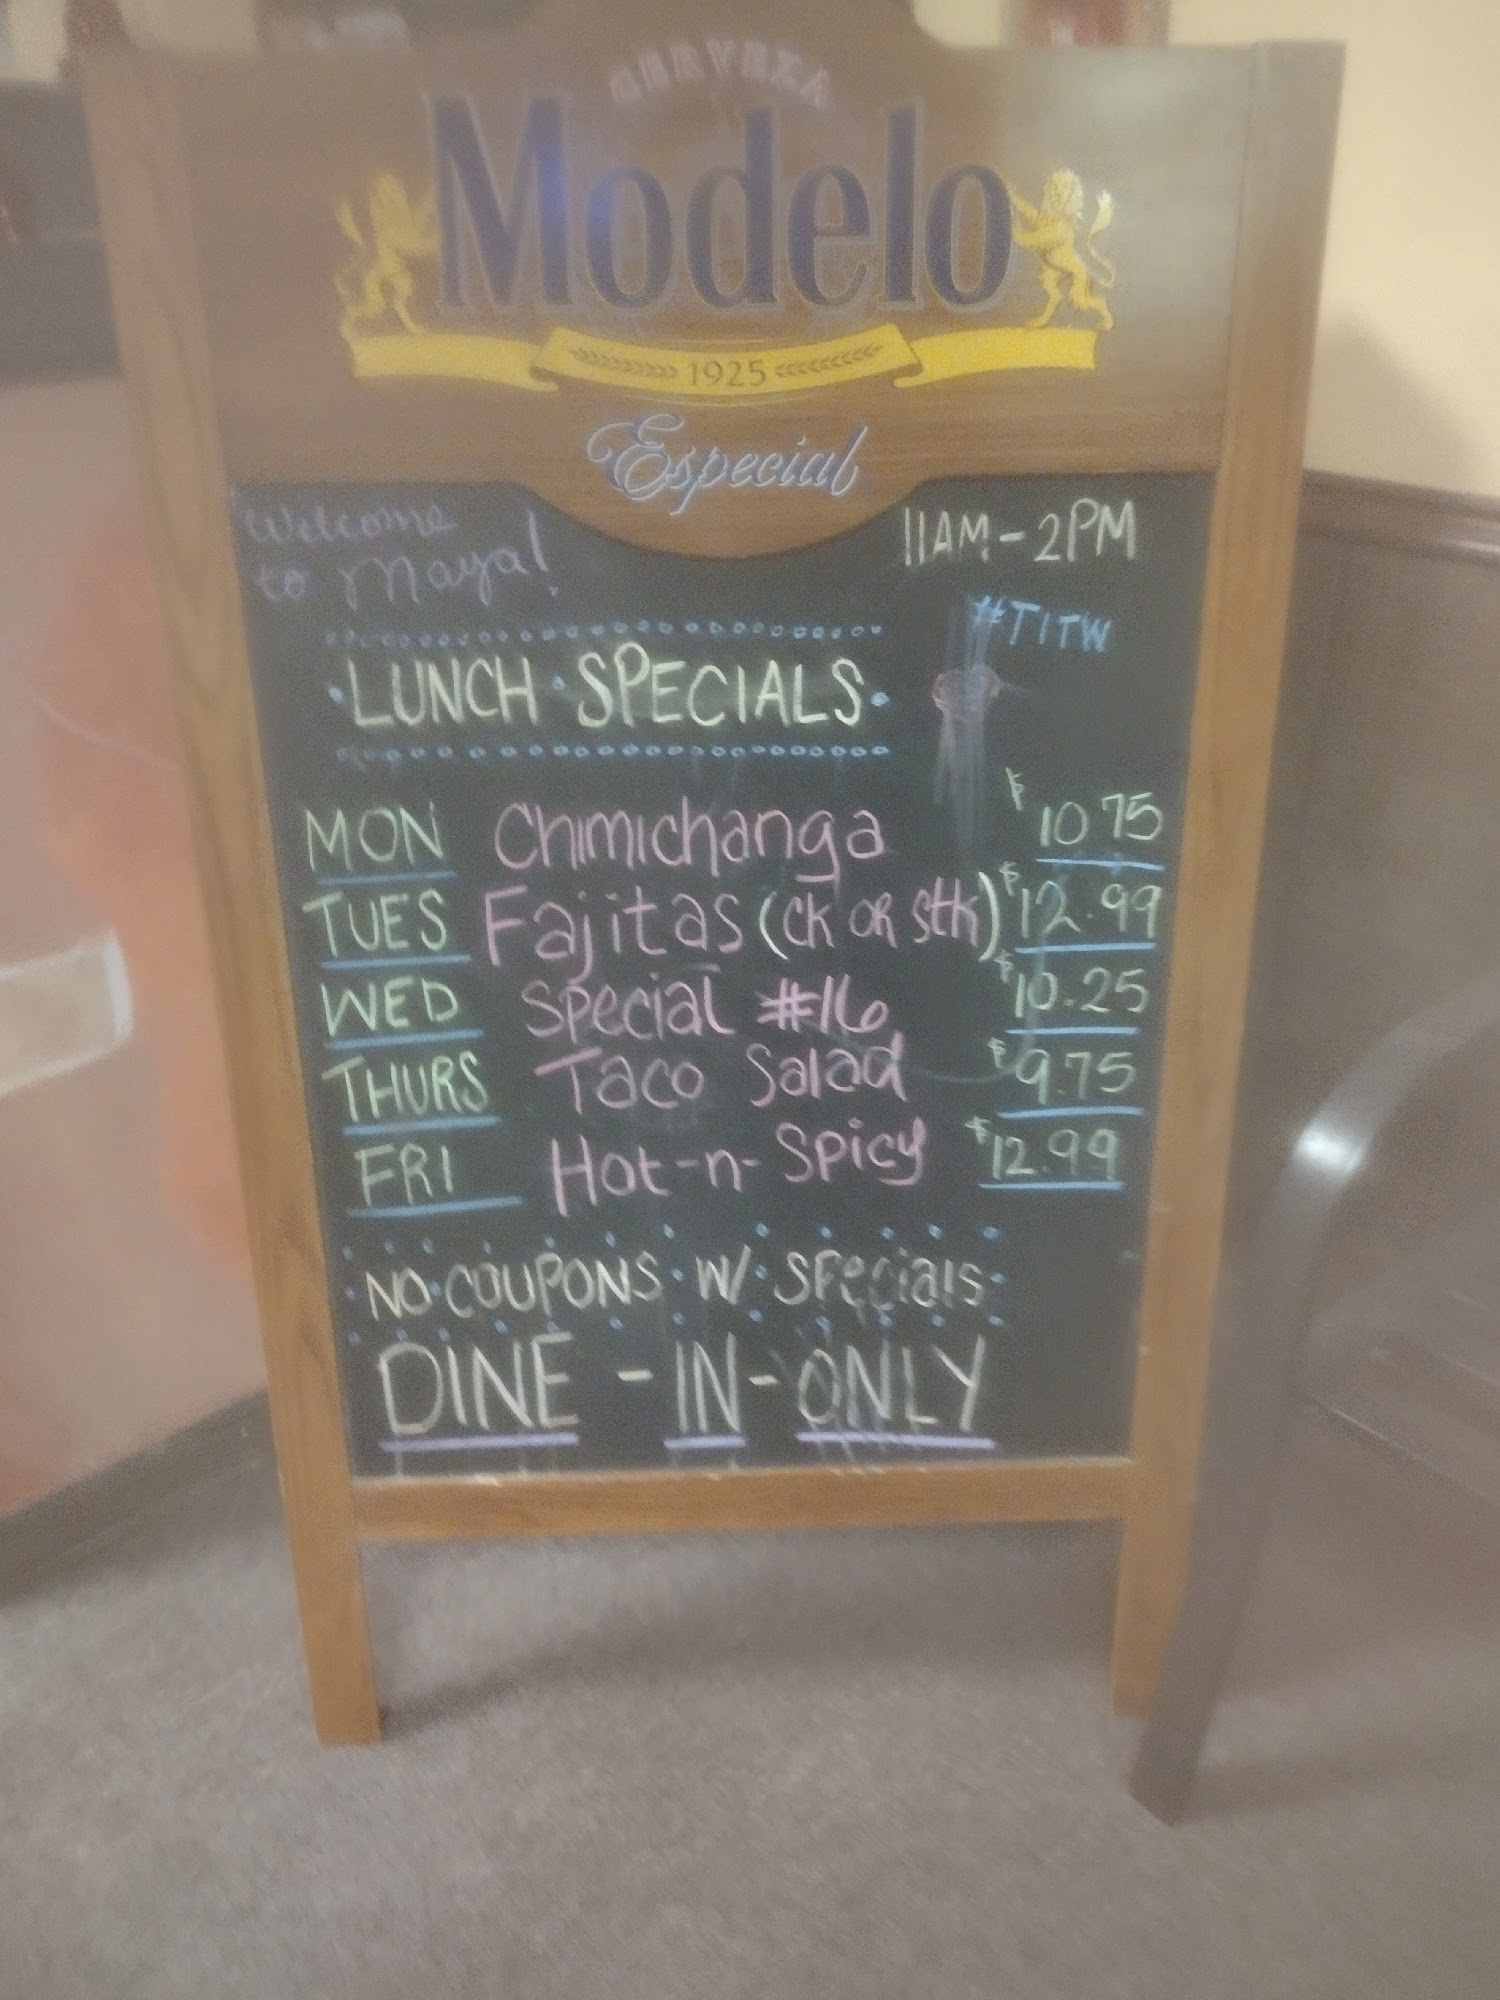 CERVEZA
Modelo
1925
Especial
Welcome
to Maya!
11AM-2PM
#TITW
LUNCH SPECIALS
MON Chimichanga $10.75
TUES Fajitas (CK OR Stk) $12.99
WED Special #16 $10.25
THURS Taco Salad $9.75
FRI Hot-n-Spicy $12.99
NO COUPONS W/ SPecials
DINE-IN-ONLY